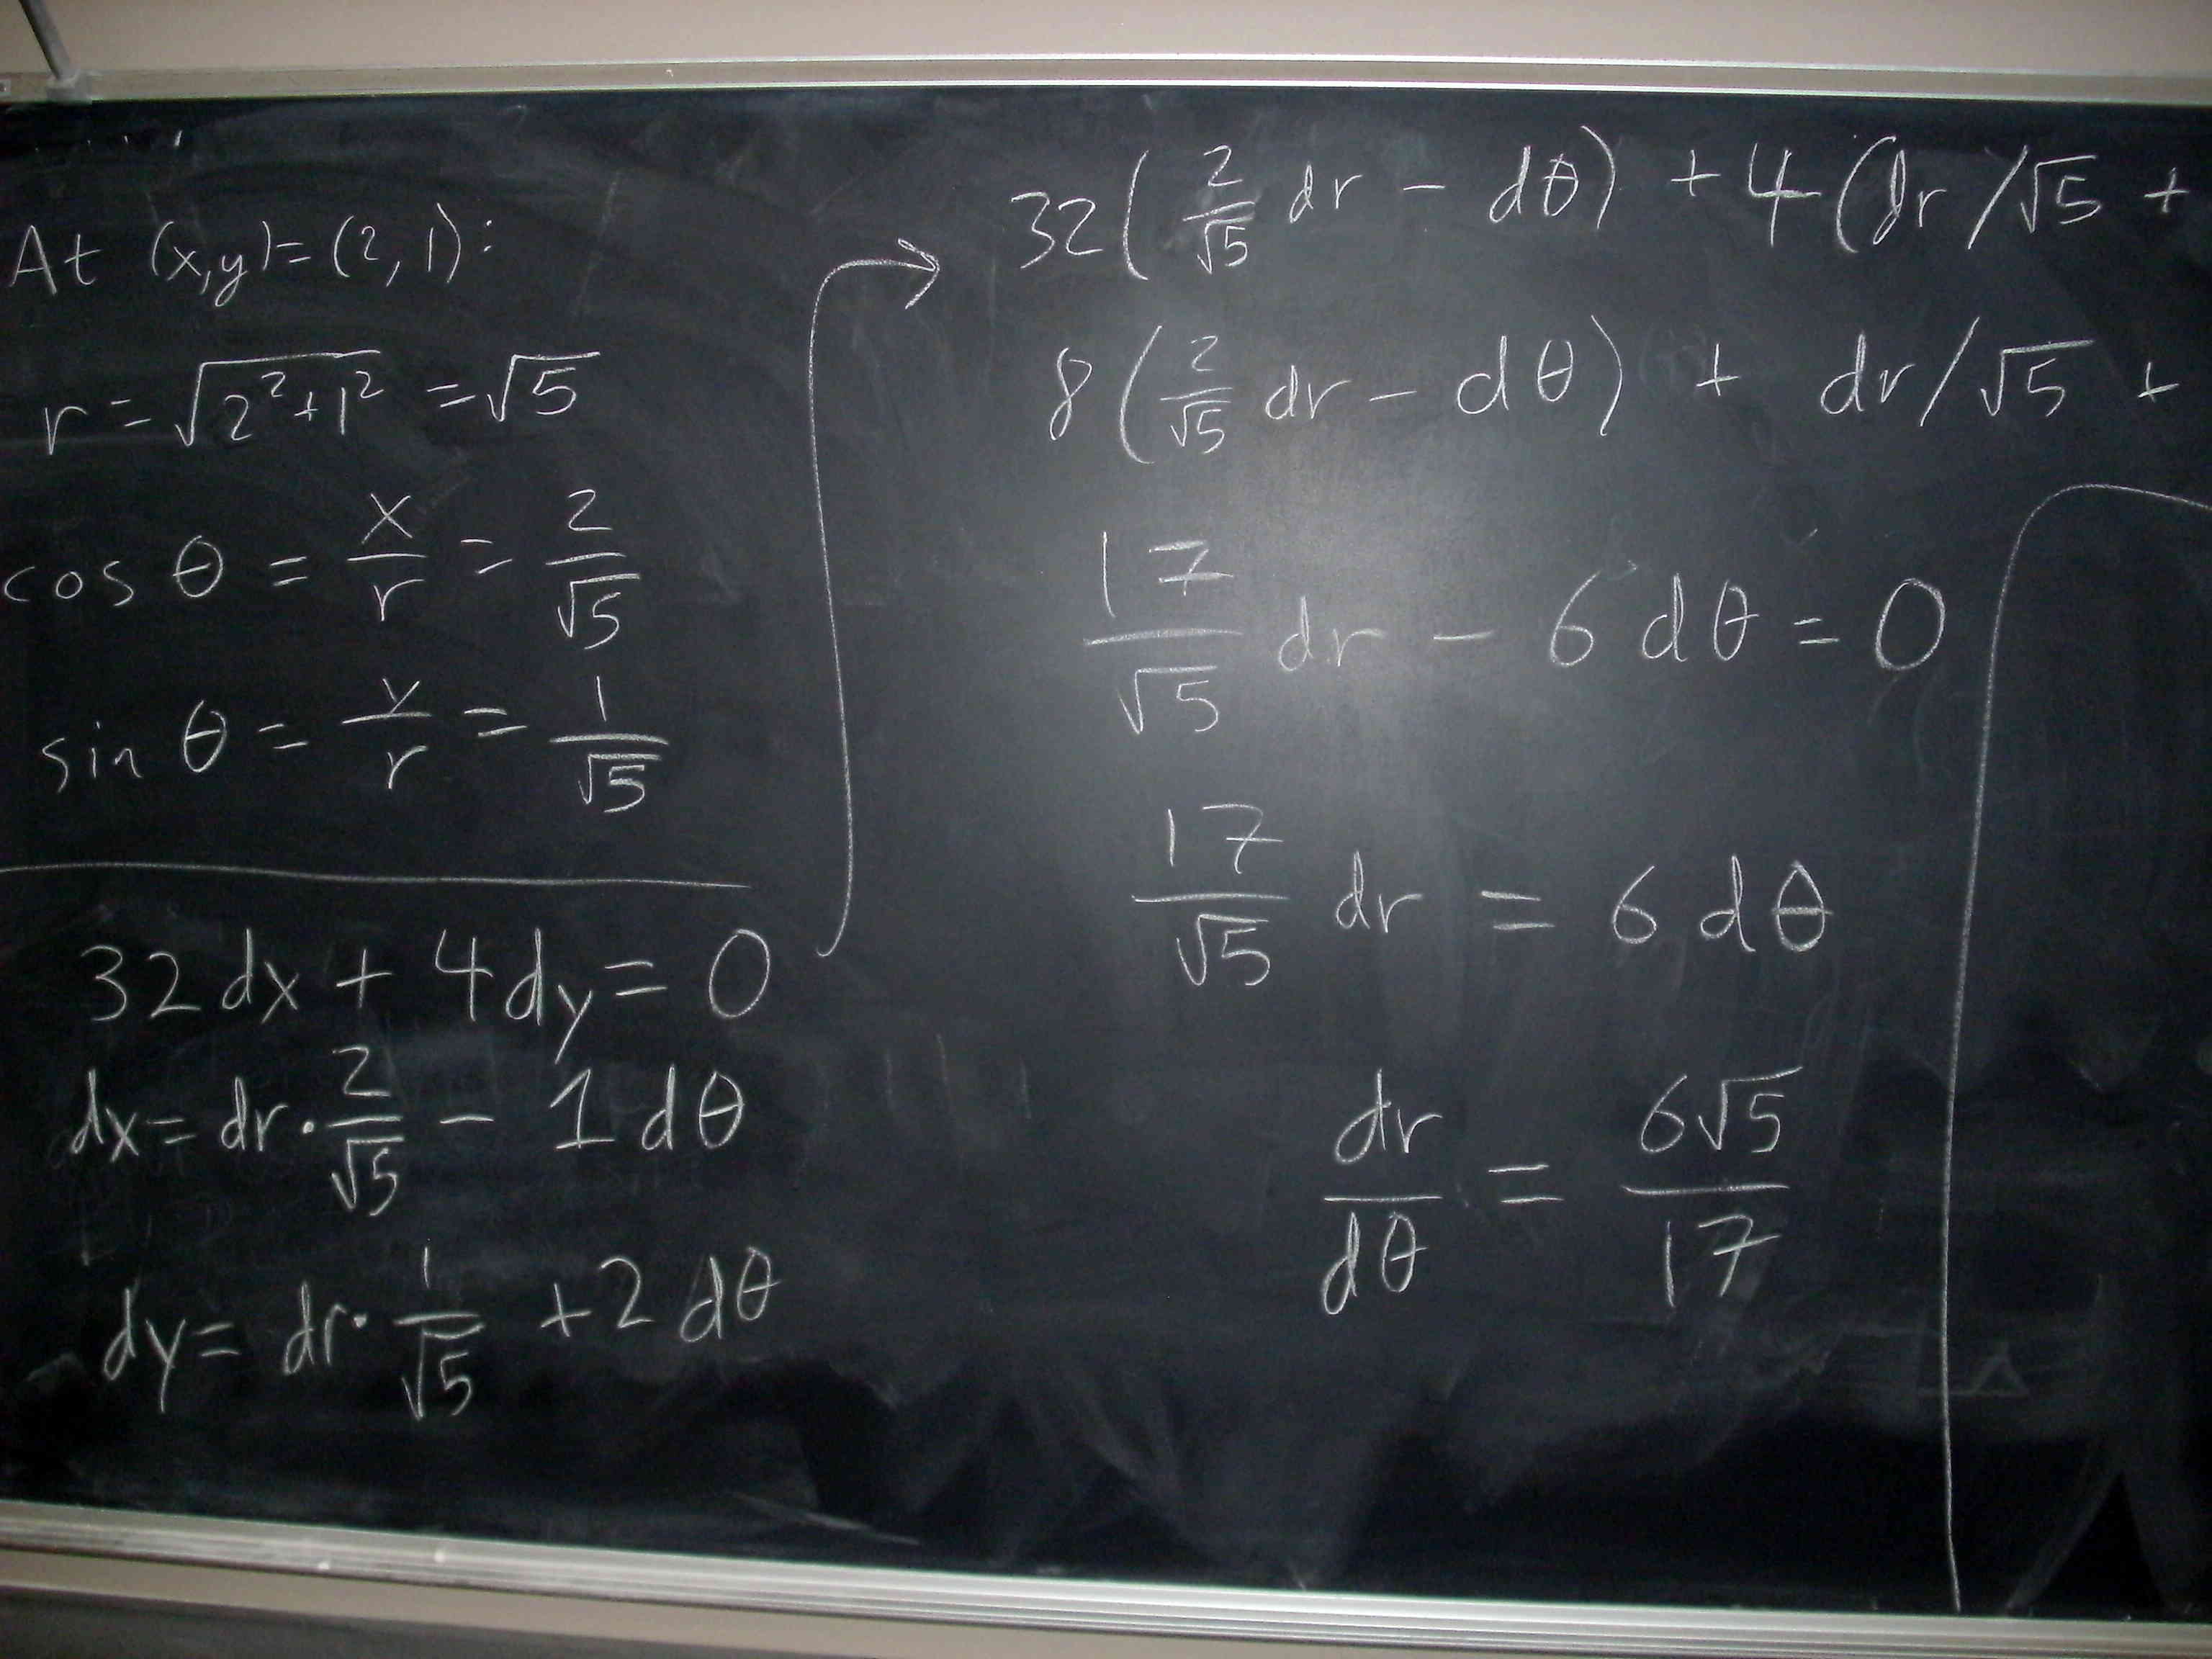 At (x,y)=(2,1):
r = √(2²+1²) = √5
cos θ = x/r = 2/√5
sin θ = y/r = 1/√5
32dx + 4dy = 0
dx = dr · 2/√5 − 1 dθ
dy = dr · 1/√5 + 2 dθ
32(2/√5 dr − dθ) + 4(dr/√5 +
8(2/√5 dr − dθ) + dr/√5 +
17/√5 dr − 6 dθ = 0
17/√5 dr = 6 dθ
dr/dθ = 6√5/17